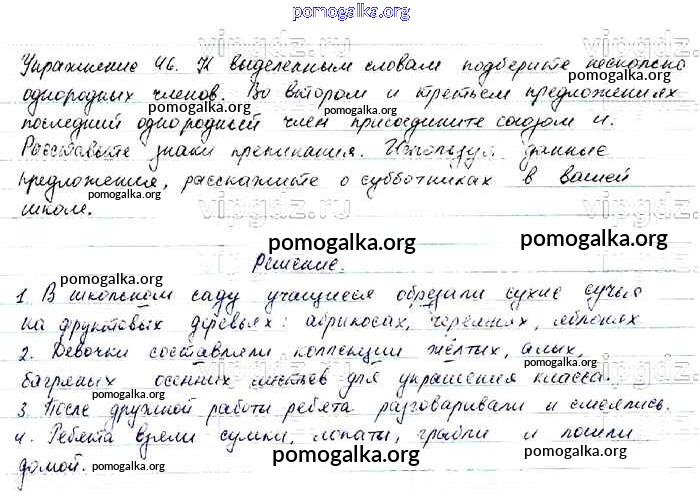 pomogalka.org
Упражнение 46. К выделенным словам подберите несколько
однородных членов. Во втором и третьем предложениях
последний однородный член присоедините союзом и.
Расставьте знаки препинания. Используя данные
предложения, расскажите о субботниках в вашей
школе.
Решение.
1. В школьном саду учащиеся обрезали сухие сучья
на фруктовых деревьях: абрикосах, черешнях, яблонях
2. Девочки составляли коллекции жёлтых, алых,
багряных осенних листьев для украшения класса.
3. После дружной работы ребята разговаривали и смеялись.
4. Ребята взяли сумки, лопаты, грабли и пошли
домой.